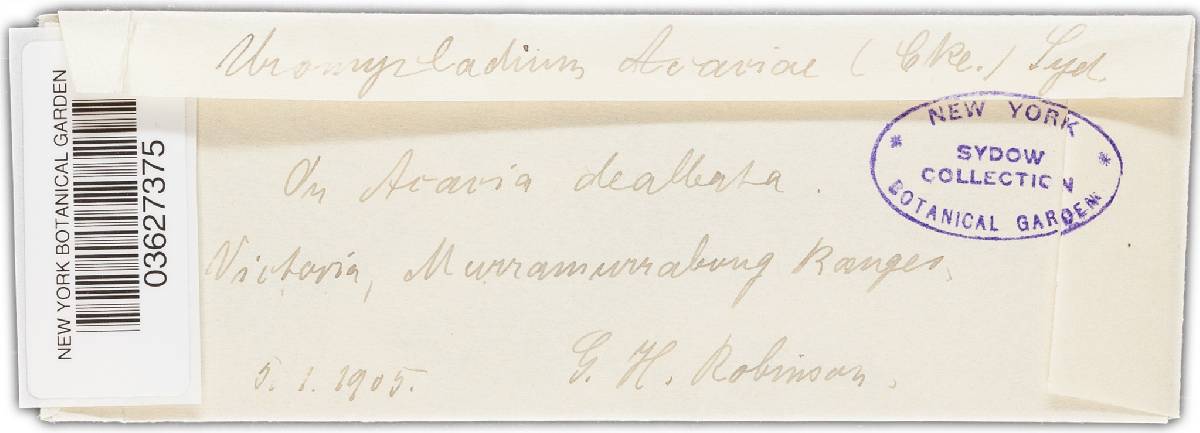 NEW YORK BOTANICAL GARDEN
03627375
Uromycladium Acaciae (Cke.) Syd.
On Acacia dealbata.
Victoria, Murramurrabong Ranges.
5.1.1905. G. H. Robinson.
* NEW YORK *
SYDOW
COLLECTION
BOTANICAL GARDEN